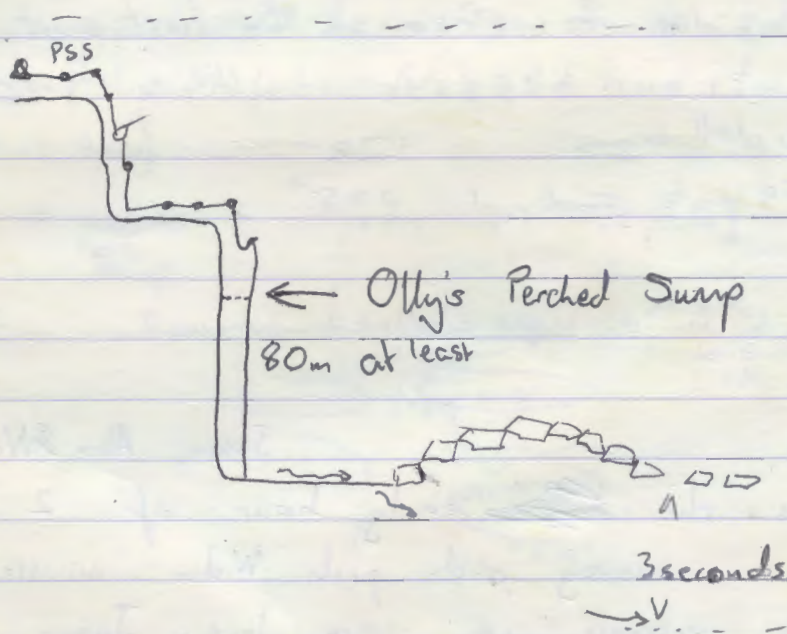 PSS
← Olly's Perched Sump
80m at least
3 seconds